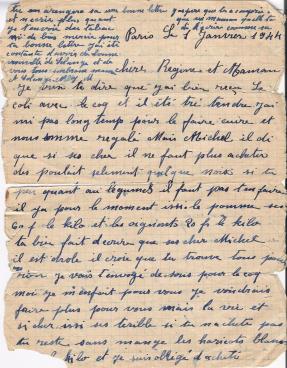 tu me arangera sa une bonne lettre
et
plus quant
je t'envoie du tabac
moi de bas merci pour
ta bonne lettre j'ai été
contante d'avoir de bonne
nouvelle de
vous
Paris Le 1 Janvier 1944
chère Regine et Maman
Je vien te dire que j'ai bien reçu le
coli avec le coq et il été tré tendre j'ai
mi pas long temp pour le faire cuire et
nous somme regalé Mais Michel il di
que si ses cher il ne faut plus acheter
des poulait selement quelque noix si tu
peu quant au legumes il faut pas t'en faire
il y a pour le moment issi le pomme ses
60 f le kilo et les oignonts 20 f le kilo
tu bien fait d'ecrire que ses cher Michel
il est drole il croix que tu trouve tous pour
rien Je vais t'envoyé de sous pour le coq
moi je m'enfout pour vous je voudrais
faire plus pour vous mais la vie et
si cher issi ses terible si tu nachete pas
tu reste sans mangé les haricots blancs
kilo et je suis obligé d'acheté